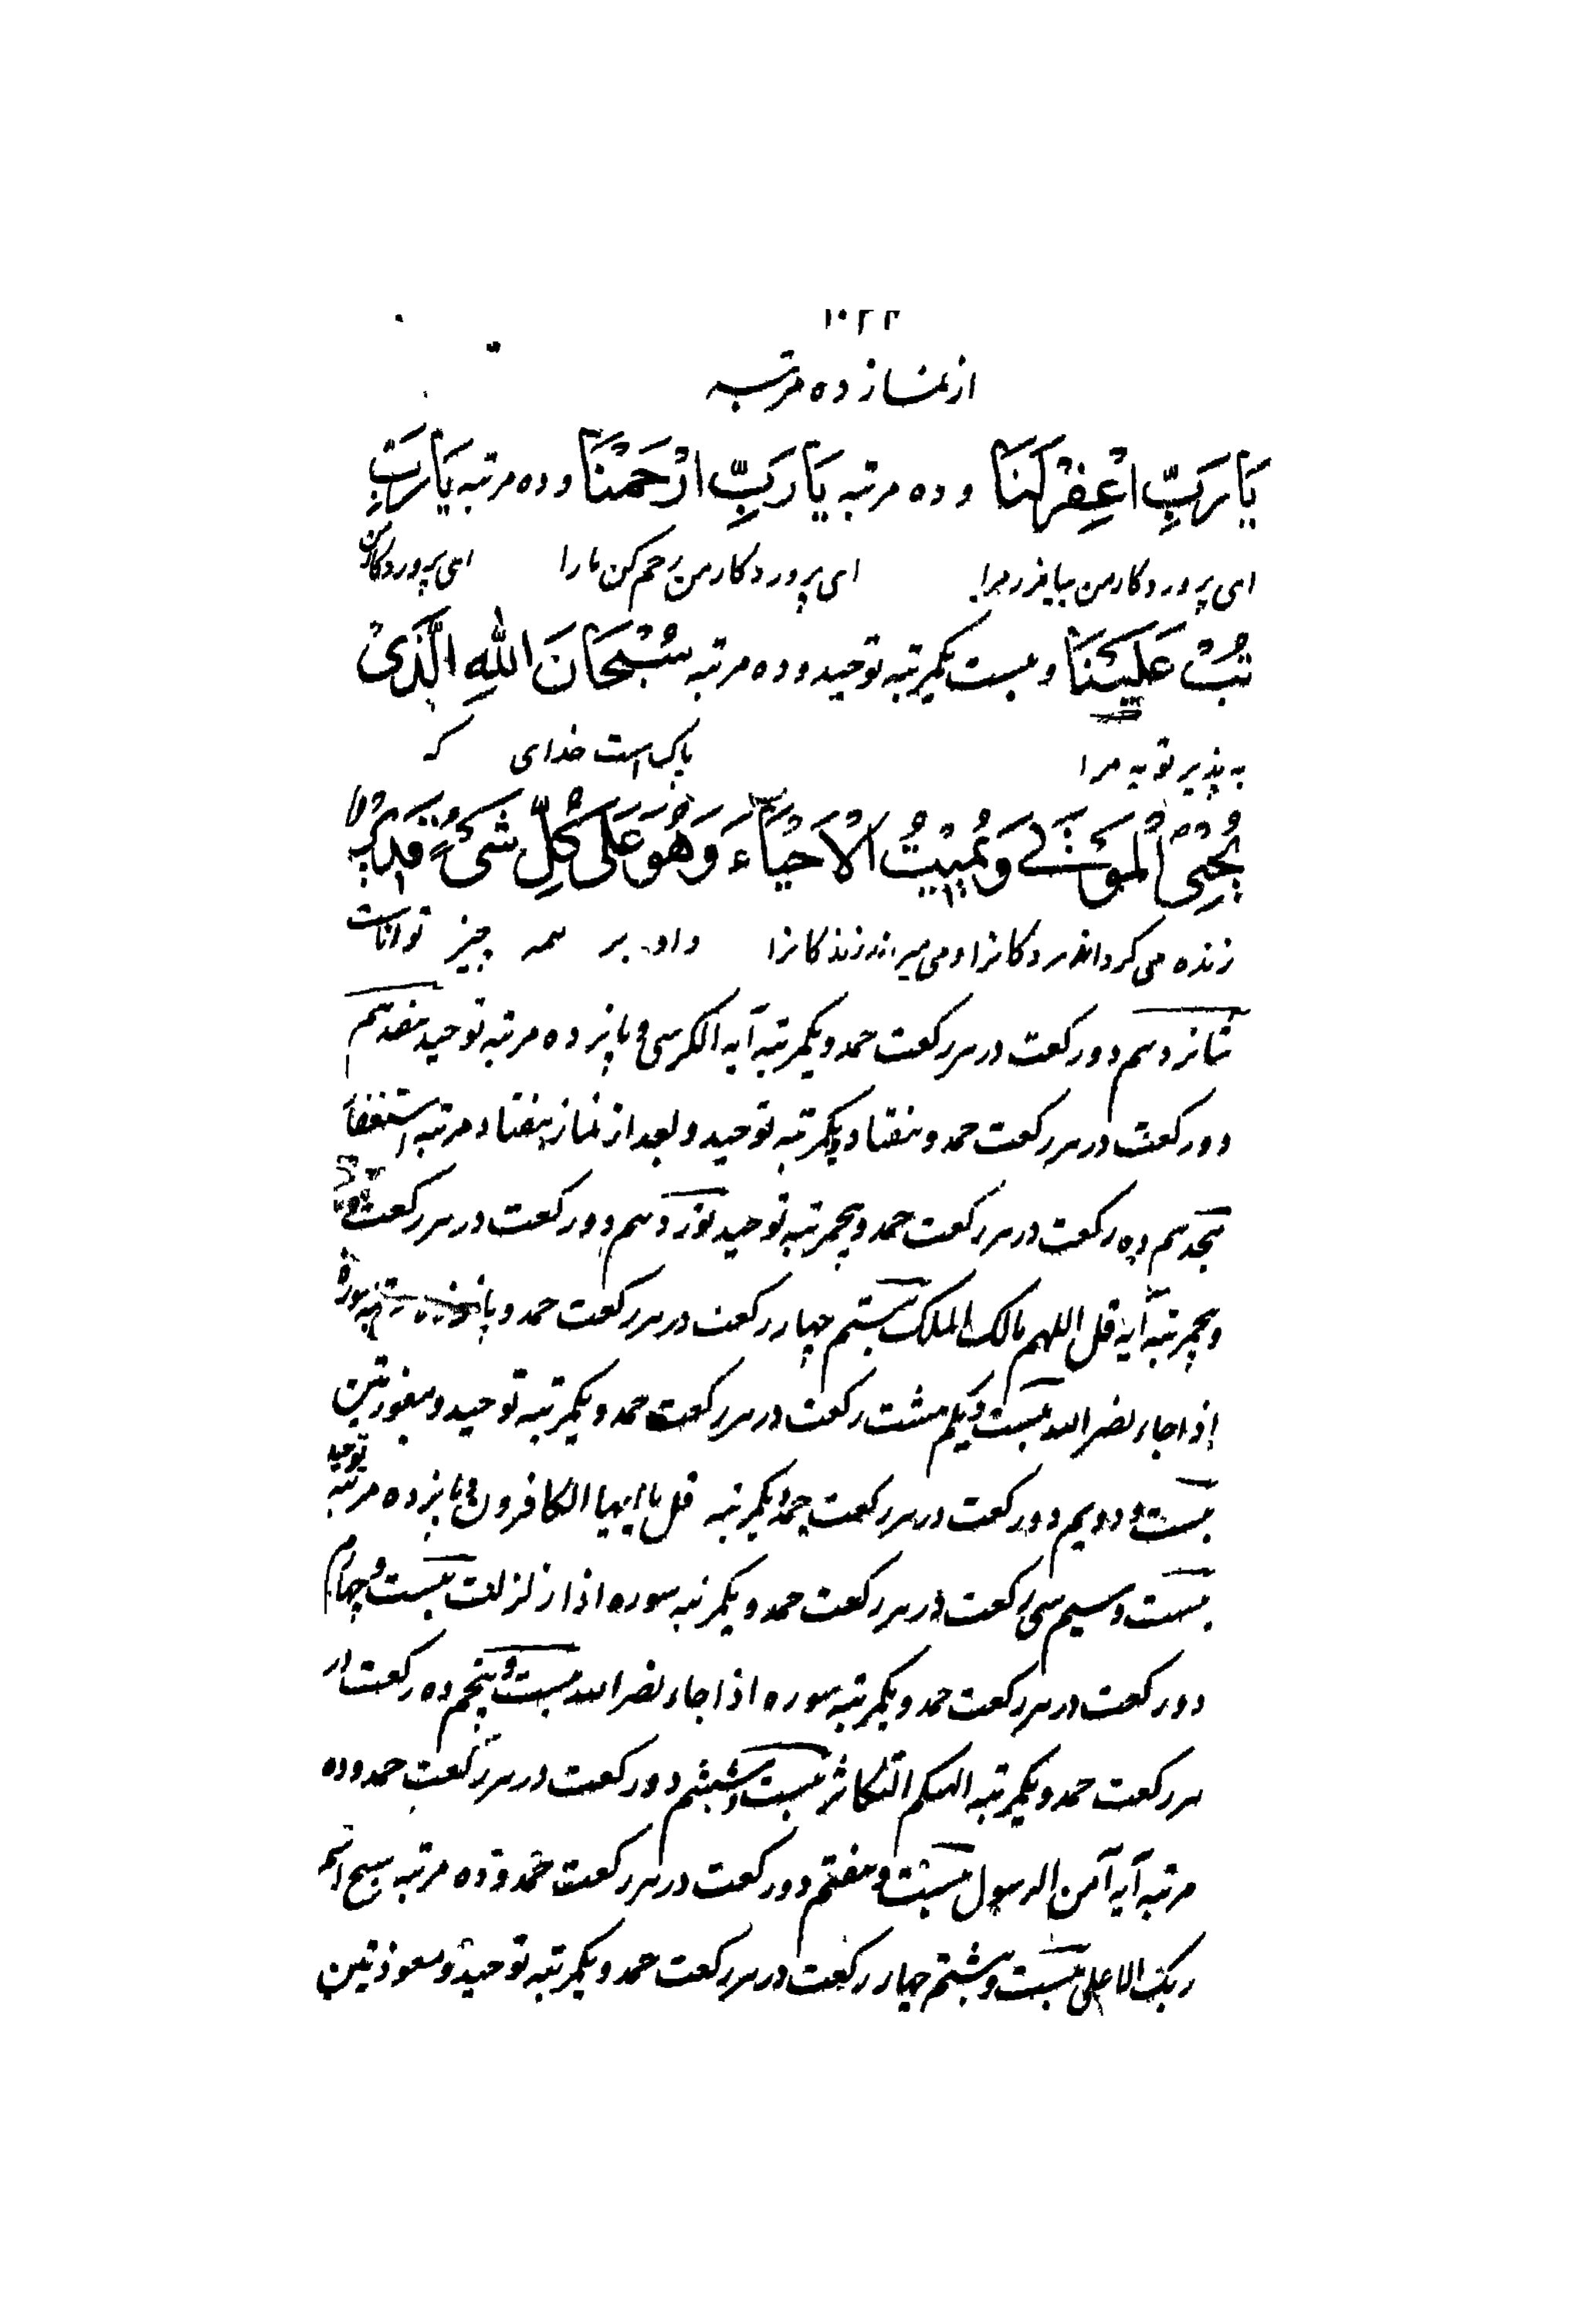 ۱۰۲۳
از نماز ده مرتبه
یَا رَبِّ اغْفِرْ لَنَا و ده مرتبه یَا رَبِّ ارْحَمْنَا و ده مرتبه یَا رَبِّ
ای پروردگار من بیامرز مرا ای پروردگار من رحم کن ما را ای پروردگار من
تُبْ عَلَیْنَا و بیست یکمرتبه توحید و ده مرتبه سُبْحَانَ اللهِ الَّذی
به پذیر توبه مرا پاک است خدای که
یُحْیِی الْمَوْتی وَ یُمیْتُ الْاَحْیَاءَ وَ هُوَ عَلی کُلِّ شَیْءٍ قَدیْرٌ
زنده می گرداند مردگانرا و می میراند زندگانرا و او بر همه چیز تواناست
شانزدهم دو رکعت در هر رکعت حمد و یکمرتبه آیه الکرسی و پانزده مرتبه توحید هفدهم
دو رکعت در هر رکعت حمد و هفتاد و یکمرتبه توحید و بعد از نماز هفتاد مرتبه استغفار
هجدهم ده رکعت در هر رکعت حمد و پنجمرتبه توحید نوزدهم دو رکعت در هر رکعت
و پنجمرتبه آیه قل اللهم مالک الملک بیستم چهار رکعت در هر رکعت حمد و پانزده مرتبه سوره
اذا جاء نصر الله بیست و یکم هشت رکعت در هر رکعت حمد و یکمرتبه توحید و معوذتین
بیست و دویم دو رکعت در هر رکعت حمد و یکمرتبه قل یا ایها الکافرون و پانزده مرتبه توحید
بیست و سیم سی رکعت در هر رکعت حمد و یکمرتبه سوره اذا زلزلت بیست و چهارم
دو رکعت در هر رکعت حمد و یکمرتبه سوره اذا جاء نصر الله بیست و پنجم ده رکعت در
هر رکعت حمد و یکمرتبه الهکم التکاثر بیست و ششم دو رکعت در هر رکعت حمد و ده
مرتبه آیه آمن الرسول بیست و هفتم دو رکعت در هر رکعت حمد و ده مرتبه سبح اسم
ربک الاعلی بیست و هشتم چهار رکعت در هر رکعت حمد و یکمرتبه توحید و معوذتین